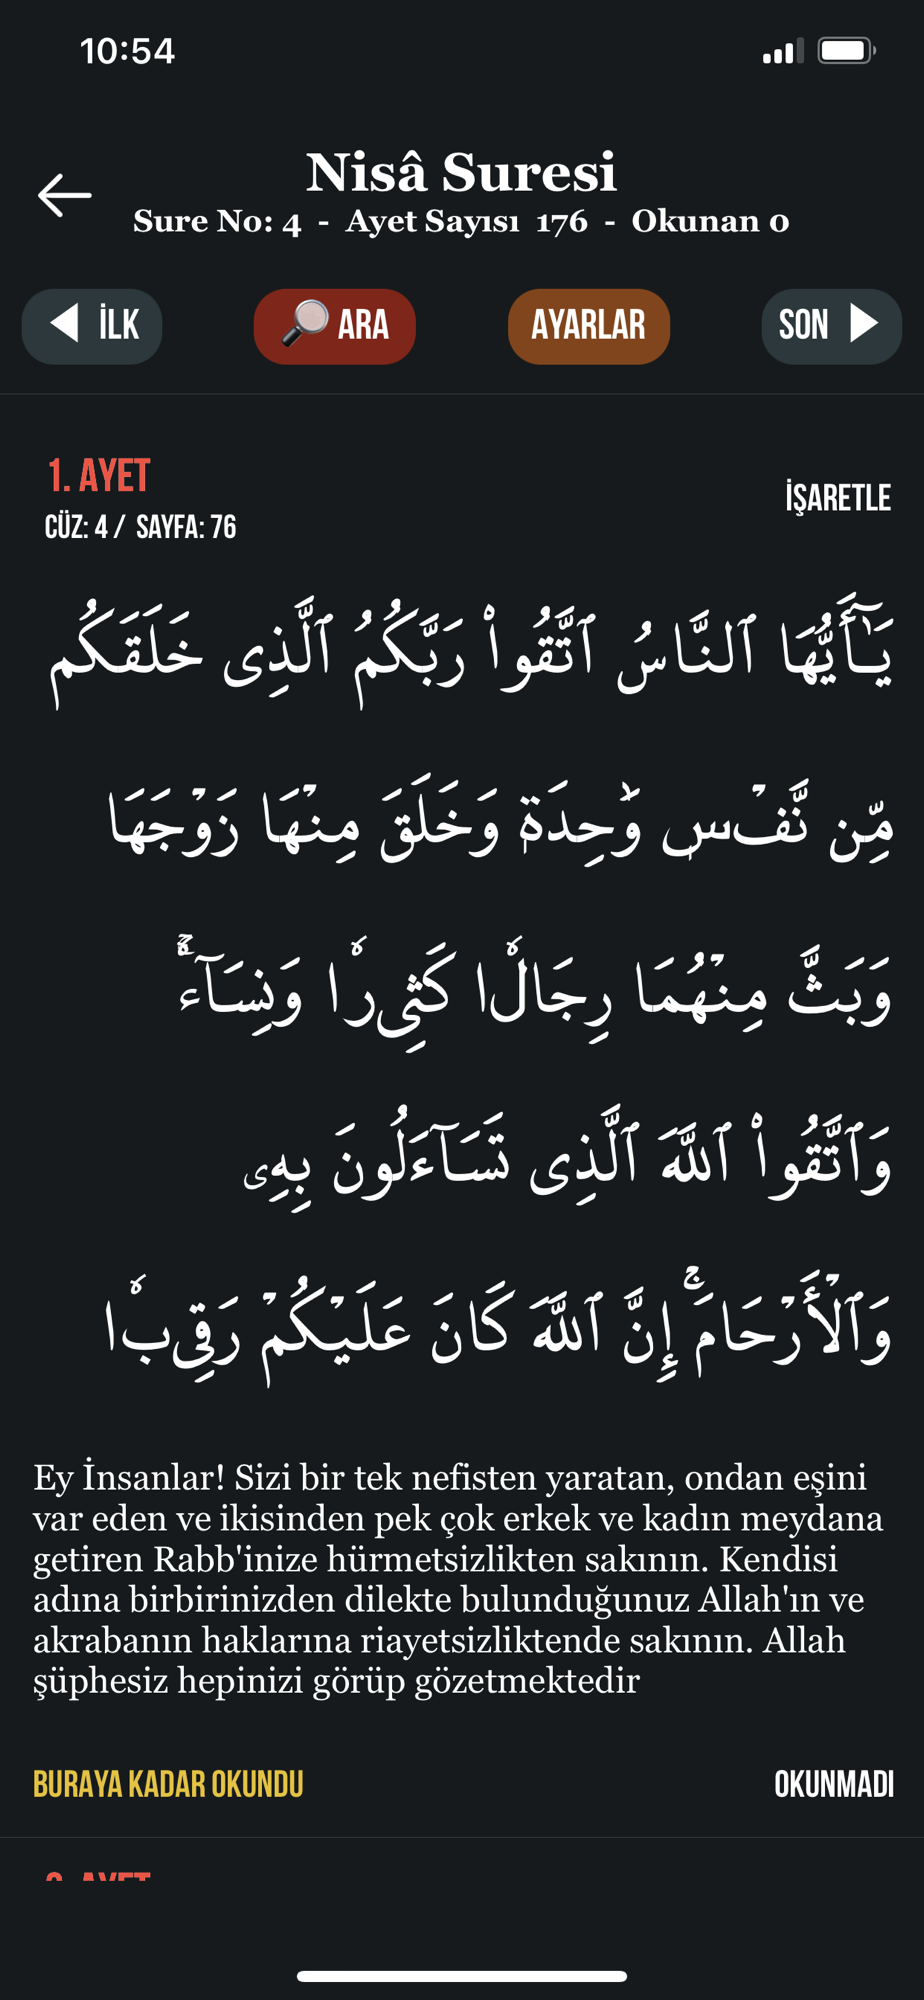 10:54
Nisâ Suresi
Sure No: 4 - Ayet Sayısı 176 - Okunan 0
İLK
ARA
AYARLAR
SON
1. AYET
İŞARETLE
CÜZ: 4 / SAYFA: 76
يَـٰٓأَيُّهَا ٱلنَّاسُ ٱتَّقُوا۟ رَبَّكُمُ ٱلَّذِى خَلَقَكُم
مِّن نَّفْسٍ وَٰحِدَةٍ وَخَلَقَ مِنْهَا زَوْجَهَا
وَبَثَّ مِنْهُمَا رِجَالًا كَثِيرًا وَنِسَآءً ۚ
وَٱتَّقُوا۟ ٱللَّهَ ٱلَّذِى تَسَآءَلُونَ بِهِۦ
وَٱلْأَرْحَامَ ۚ إِنَّ ٱللَّهَ كَانَ عَلَيْكُمْ رَقِيبًا
Ey İnsanlar! Sizi bir tek nefisten yaratan, ondan eşini
var eden ve ikisinden pek çok erkek ve kadın meydana
getiren Rabb'inize hürmetsizlikten sakının. Kendisi
adına birbirinizden dilekte bulunduğunuz Allah'ın ve
akrabanın haklarına riayetsizliktende sakının. Allah
şüphesiz hepinizi görüp gözetmektedir
BURAYA KADAR OKUNDU
OKUNMADI